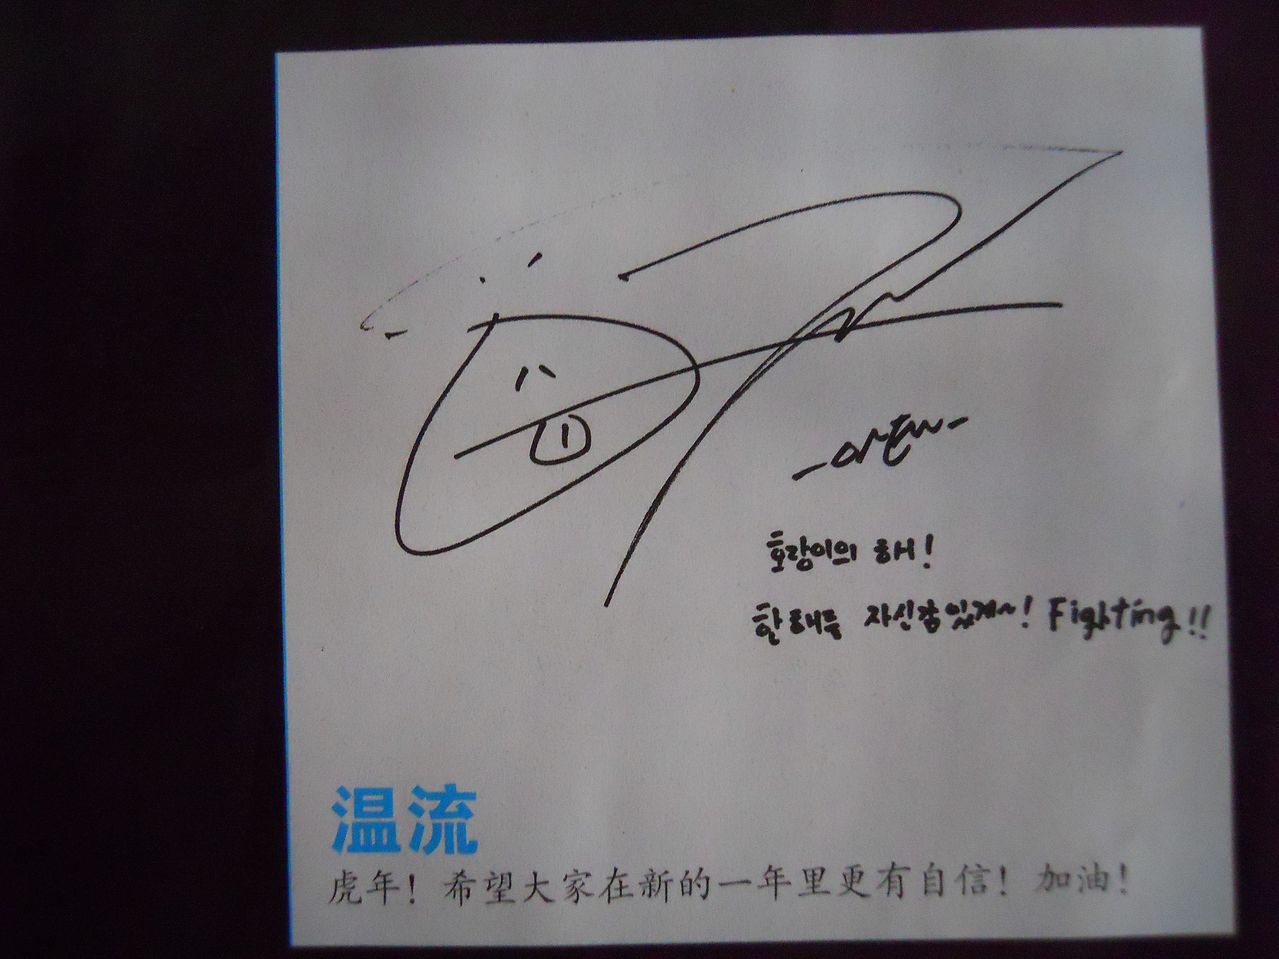 -아텐-
호랑이의 해!
한해두 자신감있게~! Fighting!!
温流
虎年！希望大家在新的一年里更有自信！加油！